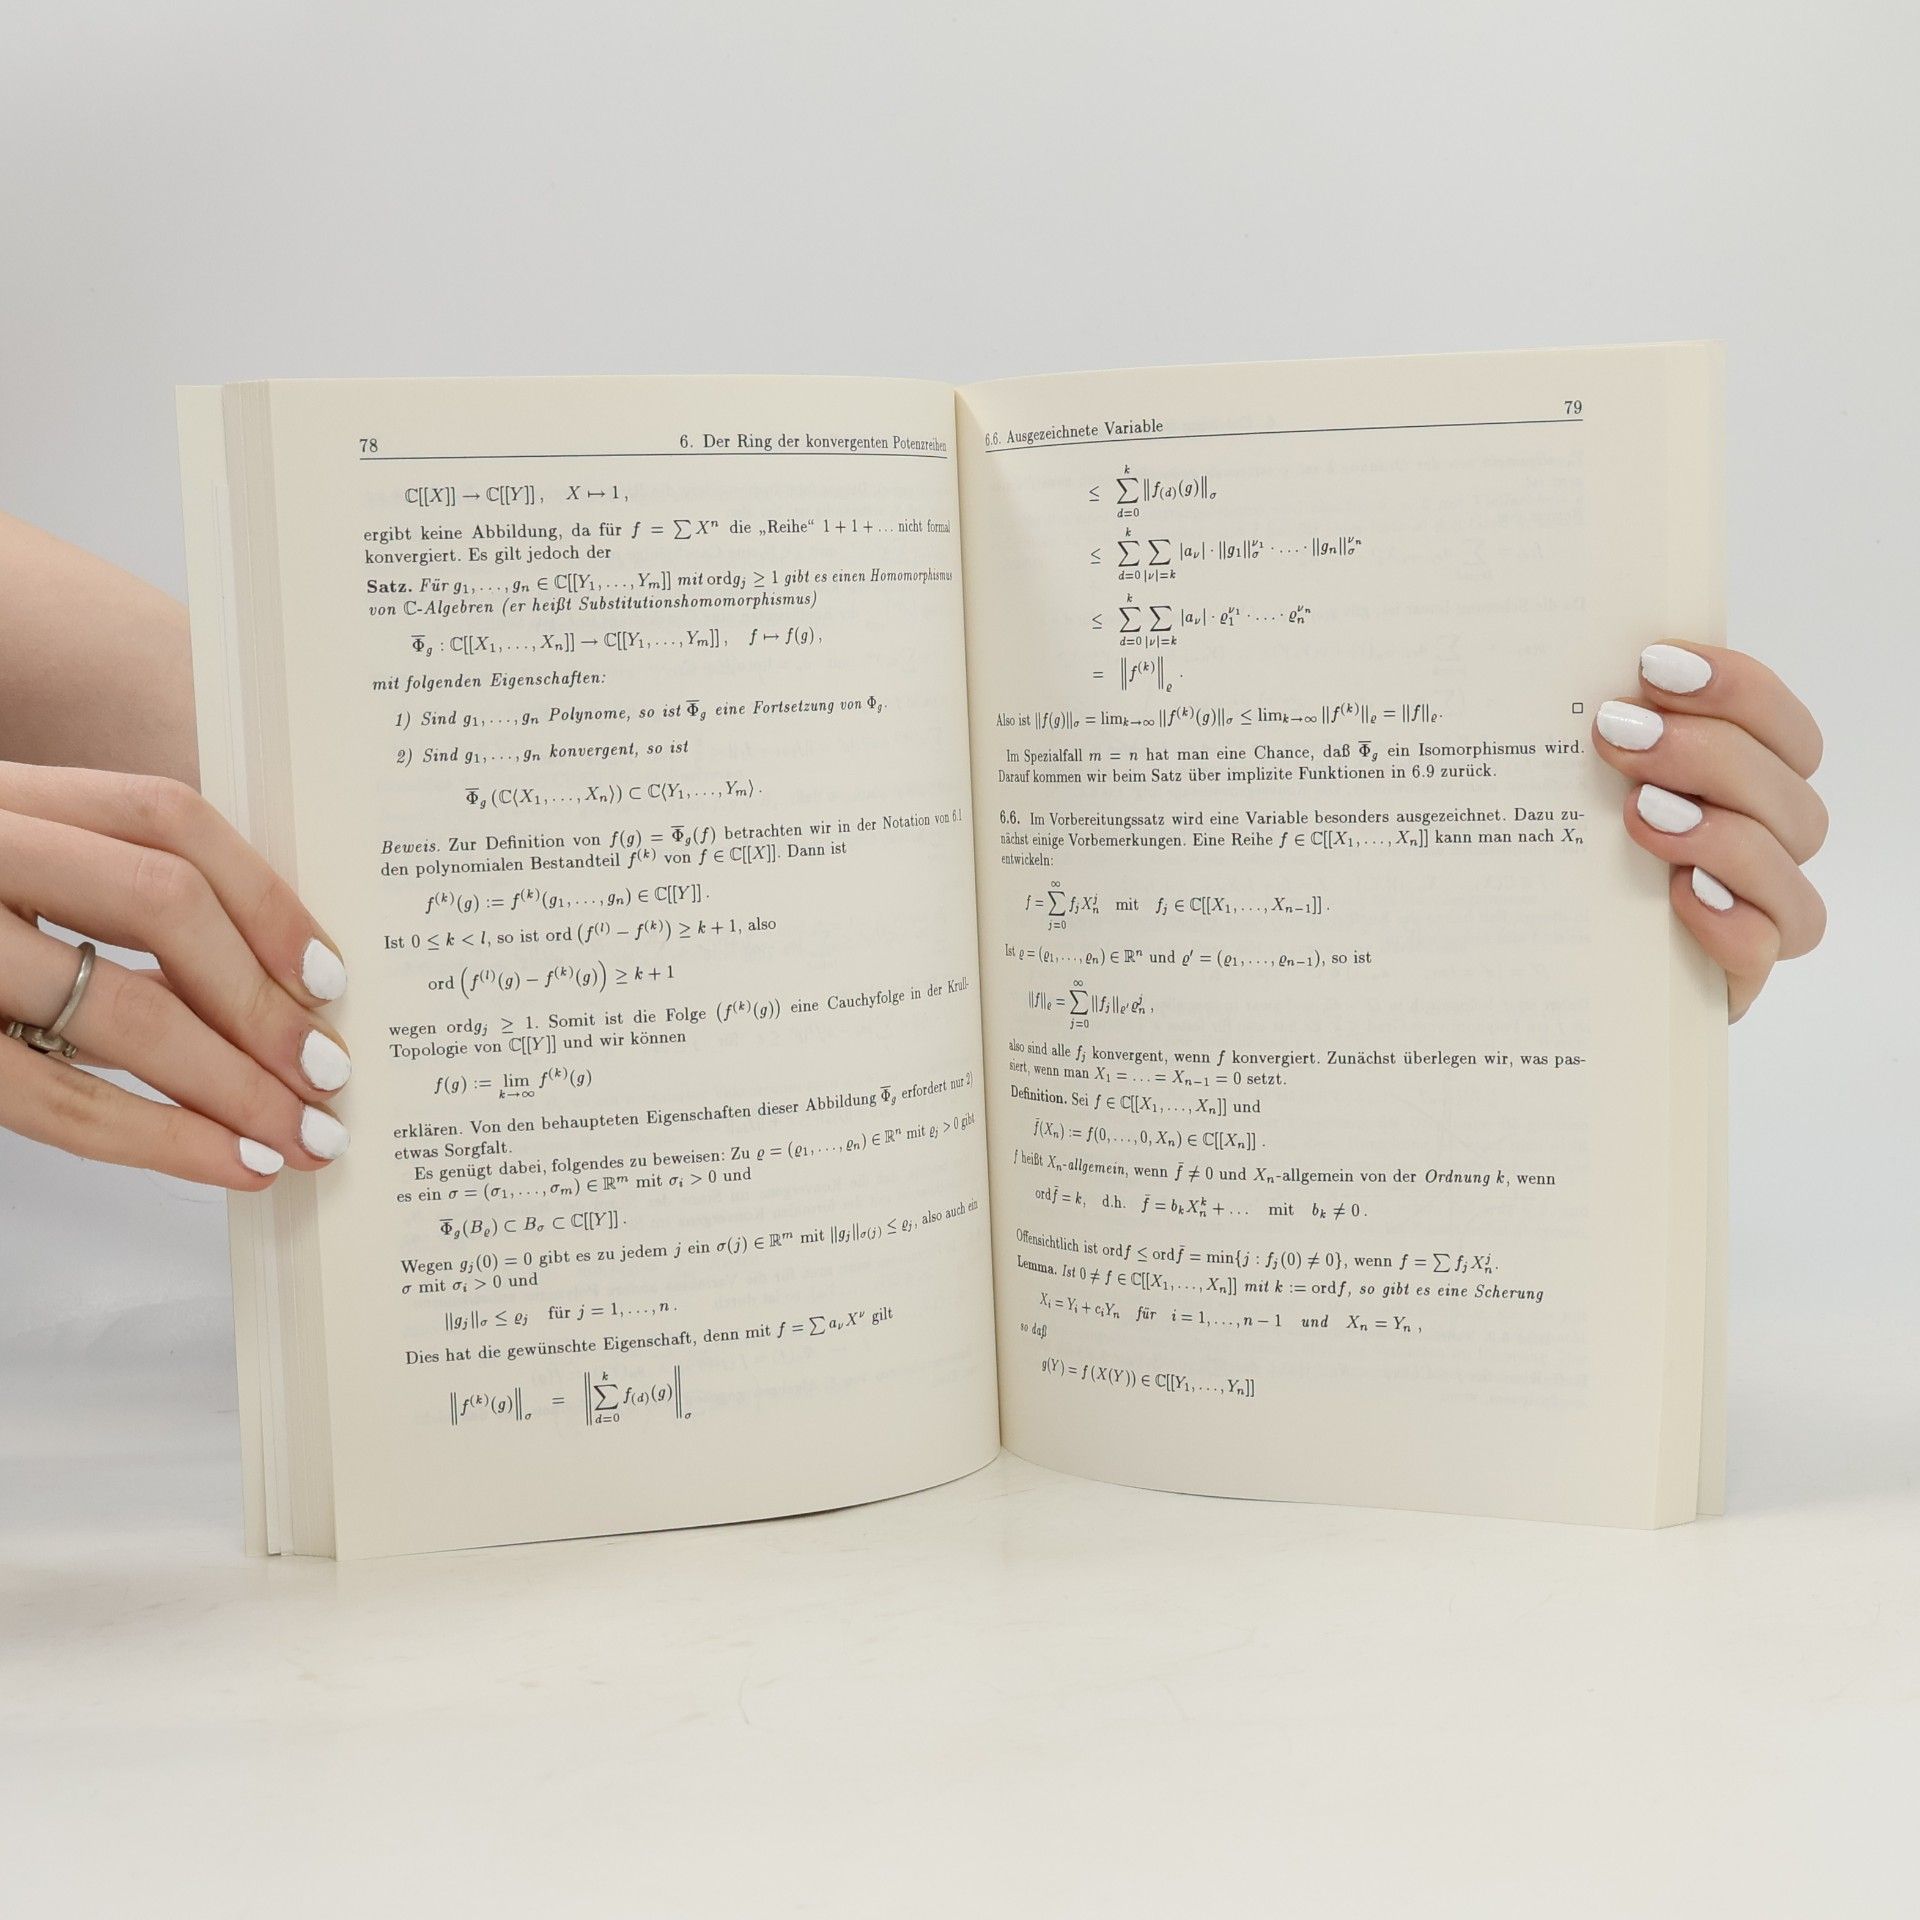 78 6. Der Ring der konvergenten Potenzreihen
ℂ[[X]] → ℂ[[Y]] , X ↦ 1 ,
ergibt keine Abbildung, da für f = ∑ Xⁿ die „Reihe“ 1 + 1 + … nicht formal
konvergiert. Es gilt jedoch der
Satz. Für g₁, …, gₙ ∈ ℂ[[Y₁, …, Yₘ]] mit ordgⱼ ≥ 1 gibt es einen Homomorphismus
von ℂ-Algebren (er heißt Substitutionshomomorphismus)
Φ̅_g : ℂ[[X₁, …, Xₙ]] → ℂ[[Y₁, …, Yₘ]] , f ↦ f(g) ,
mit folgenden Eigenschaften:
1) Sind g₁, …, gₙ Polynome, so ist Φ̅_g eine Fortsetzung von Φ_g.
2) Sind g₁, …, gₙ konvergent, so ist
Φ̅_g (ℂ⟨X₁, …, Xₙ⟩) ⊂ ℂ⟨Y₁, …, Yₘ⟩ .
Beweis. Zur Definition von f(g) = Φ̅_g(f) betrachten wir in der Notation von 6.1
den polynomialen Bestandteil f^(k) von f ∈ ℂ[[X]]. Dann ist
f^(k)(g) := f^(k)(g₁, …, gₙ) ∈ ℂ[[Y]] .
Ist 0 ≤ k < l, so ist ord (f^(l) − f^(k)) ≥ k + 1, also
ord (f^(l)(g) − f^(k)(g)) ≥ k + 1
wegen ordgⱼ ≥ 1. Somit ist die Folge (f^(k)(g)) eine Cauchyfolge in der Krull-
Topologie von ℂ[[Y]] und wir können
f(g) := lim_{k→∞} f^(k)(g)
erklären. Von den behaupteten Eigenschaften dieser Abbildung Φ̅_g erfordert nur 2)
etwas Sorgfalt.
Es genügt dabei, folgendes zu beweisen: Zu ϱ = (ϱ₁, …, ϱₙ) ∈ ℝⁿ mit ϱⱼ > 0 gibt
es ein σ = (σ₁, …, σₘ) ∈ ℝᵐ mit σᵢ > 0 und
Φ̅_g(B_ϱ) ⊂ B_σ ⊂ ℂ[[Y]] .
Wegen gⱼ(0) = 0 gibt es zu jedem j ein σ(j) ∈ ℝᵐ mit ‖gⱼ‖_σ(j) ≤ ϱⱼ, also auch ein
σ mit σᵢ > 0 und
‖gⱼ‖_σ ≤ ϱⱼ für j = 1, …, n .
Dies hat die gewünschte Eigenschaft, denn mit f = ∑ a_ν X^ν gilt
‖f^(k)(g)‖_σ = ‖∑_{d=0}^{k} f_(d)(g)‖_σ
6.6. Ausgezeichnete Variable 79
≤ ∑_{d=0}^{k} ‖f_(d)(g)‖_σ
≤ ∑_{d=0}^{k} ∑_{|ν|=k} |a_ν| · ‖g₁‖_σ^{ν₁} · … · ‖gₙ‖_σ^{νₙ}
≤ ∑_{d=0}^{k} ∑_{|ν|=k} |a_ν| · ϱ₁^{ν₁} · … · ϱₙ^{νₙ}
= ‖f^(k)‖_ϱ .
Also ist ‖f(g)‖_σ = lim_{k→∞} ‖f^(k)(g)‖_σ ≤ lim_{k→∞} ‖f^(k)‖_ϱ = ‖f‖_ϱ. □
Im Spezialfall m = n hat man eine Chance, daß Φ̅_g ein Isomorphismus wird.
Darauf kommen wir beim Satz über implizite Funktionen in 6.9 zurück.
6.6. Im Vorbereitungssatz wird eine Variable besonders ausgezeichnet. Dazu zu-
nächst einige Vorbemerkungen. Eine Reihe f ∈ ℂ[[X₁, …, Xₙ]] kann man nach Xₙ
entwickeln:
f = ∑_{j=0}^{∞} fⱼXₙʲ mit fⱼ ∈ ℂ[[X₁, …, Xₙ₋₁]] .
Ist ϱ = (ϱ₁, …, ϱₙ) ∈ ℝⁿ und ϱ′ = (ϱ₁, …, ϱₙ₋₁), so ist
‖f‖_ϱ = ∑_{j=0}^{∞} ‖fⱼ‖_ϱ′ ϱₙʲ ,
also sind alle fⱼ konvergent, wenn f konvergiert. Zunächst überlegen wir, was pas-
siert, wenn man X₁ = … = Xₙ₋₁ = 0 setzt.
Definition. Sei f ∈ ℂ[[X₁, …, Xₙ]] und
f̄(Xₙ) := f(0, …, 0, Xₙ) ∈ ℂ[[Xₙ]] .
f heißt Xₙ-allgemein, wenn f̄ ≠ 0 und Xₙ-allgemein von der Ordnung k, wenn
ordf̄ = k, d.h. f̄ = bₖXₙᵏ + … mit bₖ ≠ 0 .
Offensichtlich ist ordf ≤ ordf̄ = min{j : fⱼ(0) ≠ 0}, wenn f = ∑ fⱼXₙʲ.
Lemma. Ist 0 ≠ f ∈ ℂ[[X₁, …, Xₙ]] mit k := ordf, so gibt es eine Scherung
Xᵢ = Yᵢ + cᵢYₙ für i = 1, …, n − 1 und Xₙ = Yₙ ,
so daß
g(Y) = f(X(Y)) ∈ ℂ[[Y₁, …, Yₙ]]